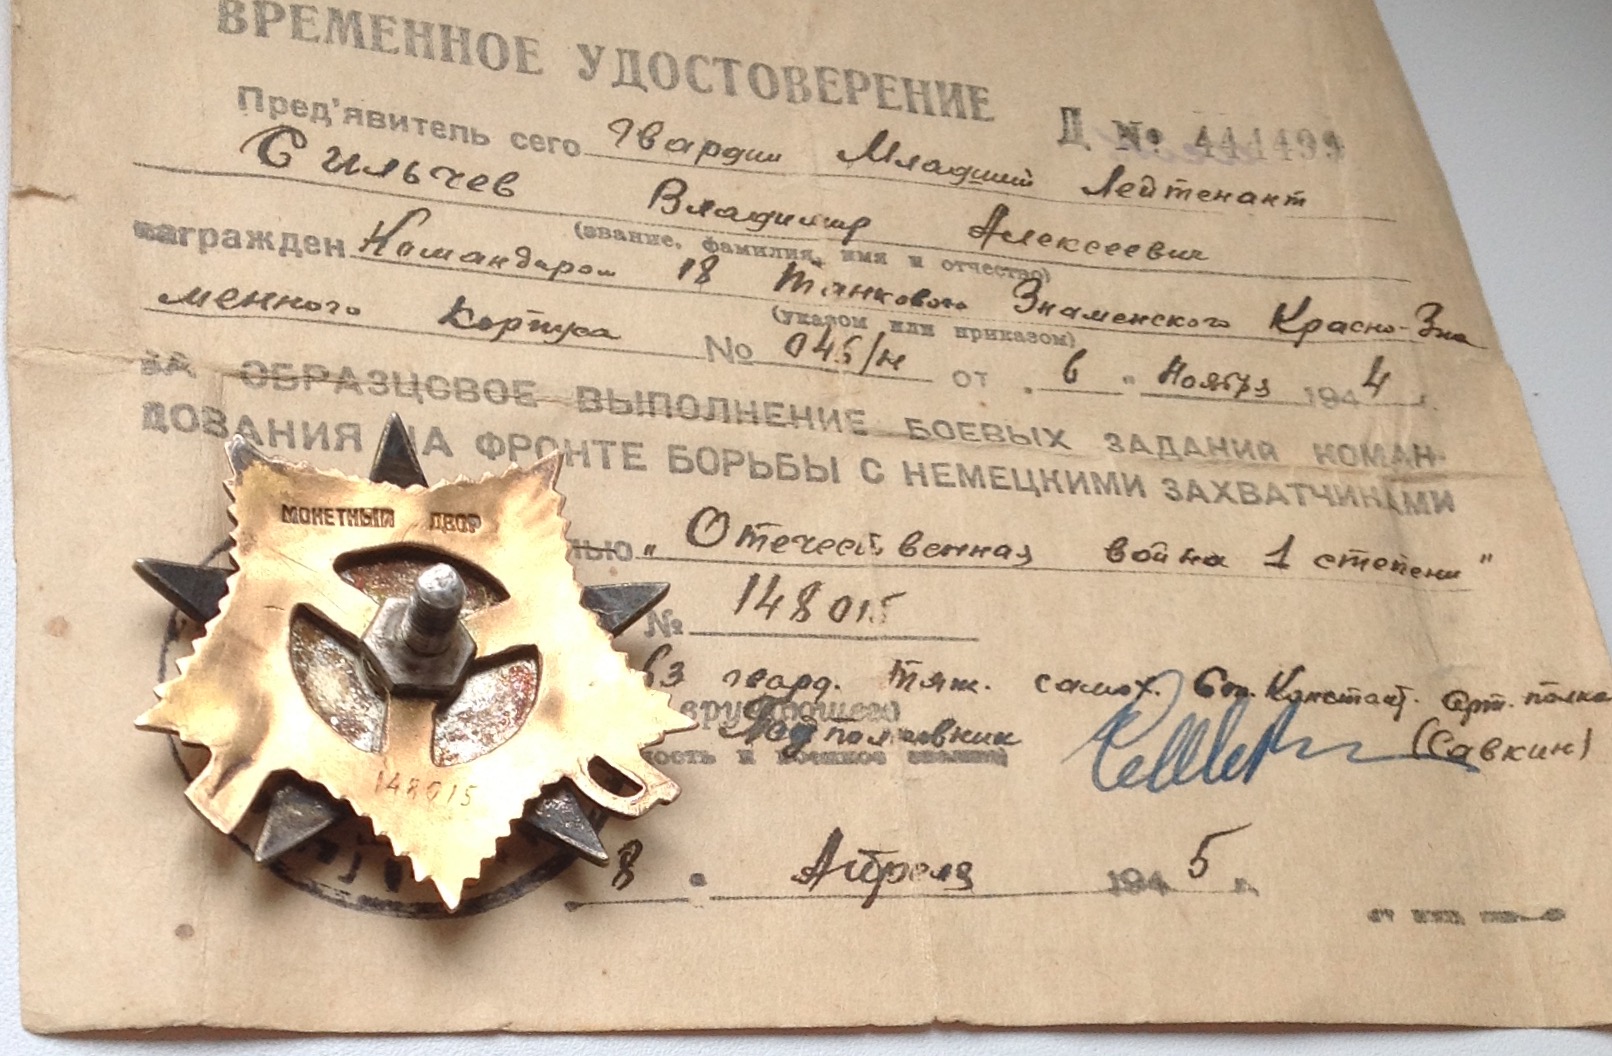 ВРЕМЕННОЕ УДОСТОВЕРЕНИЕ
Д № 444499
Пред'явитель сего Гвардии Младший Лейтенант
Сильчев Владимир Алексеевич
(звание, фамилия, имя и отчество)
награжден Командиром 18 Танкового Знаменского Красно-Зна
(указом или приказом)
менного Корпуса № 045/н от "6" Ноября 1944 г.
ЗА ОБРАЗЦОВОЕ ВЫПОЛНЕНИЕ БОЕВЫХ ЗАДАНИЙ КОМАН-
ДОВАНИЯ НА ФРОНТЕ БОРЬБЫ С НЕМЕЦКИМИ ЗАХВАТЧИКАМИ
лью „Отечественная война 1 степени"
№ 148015
гвард. Тяж. самох. Констант. Арт. полка
вручающего
Подполковник (Савкин)
ность и воинское звание
8 Апреля 1945 г.
МОНЕТНЫЙ ДВОР
148015